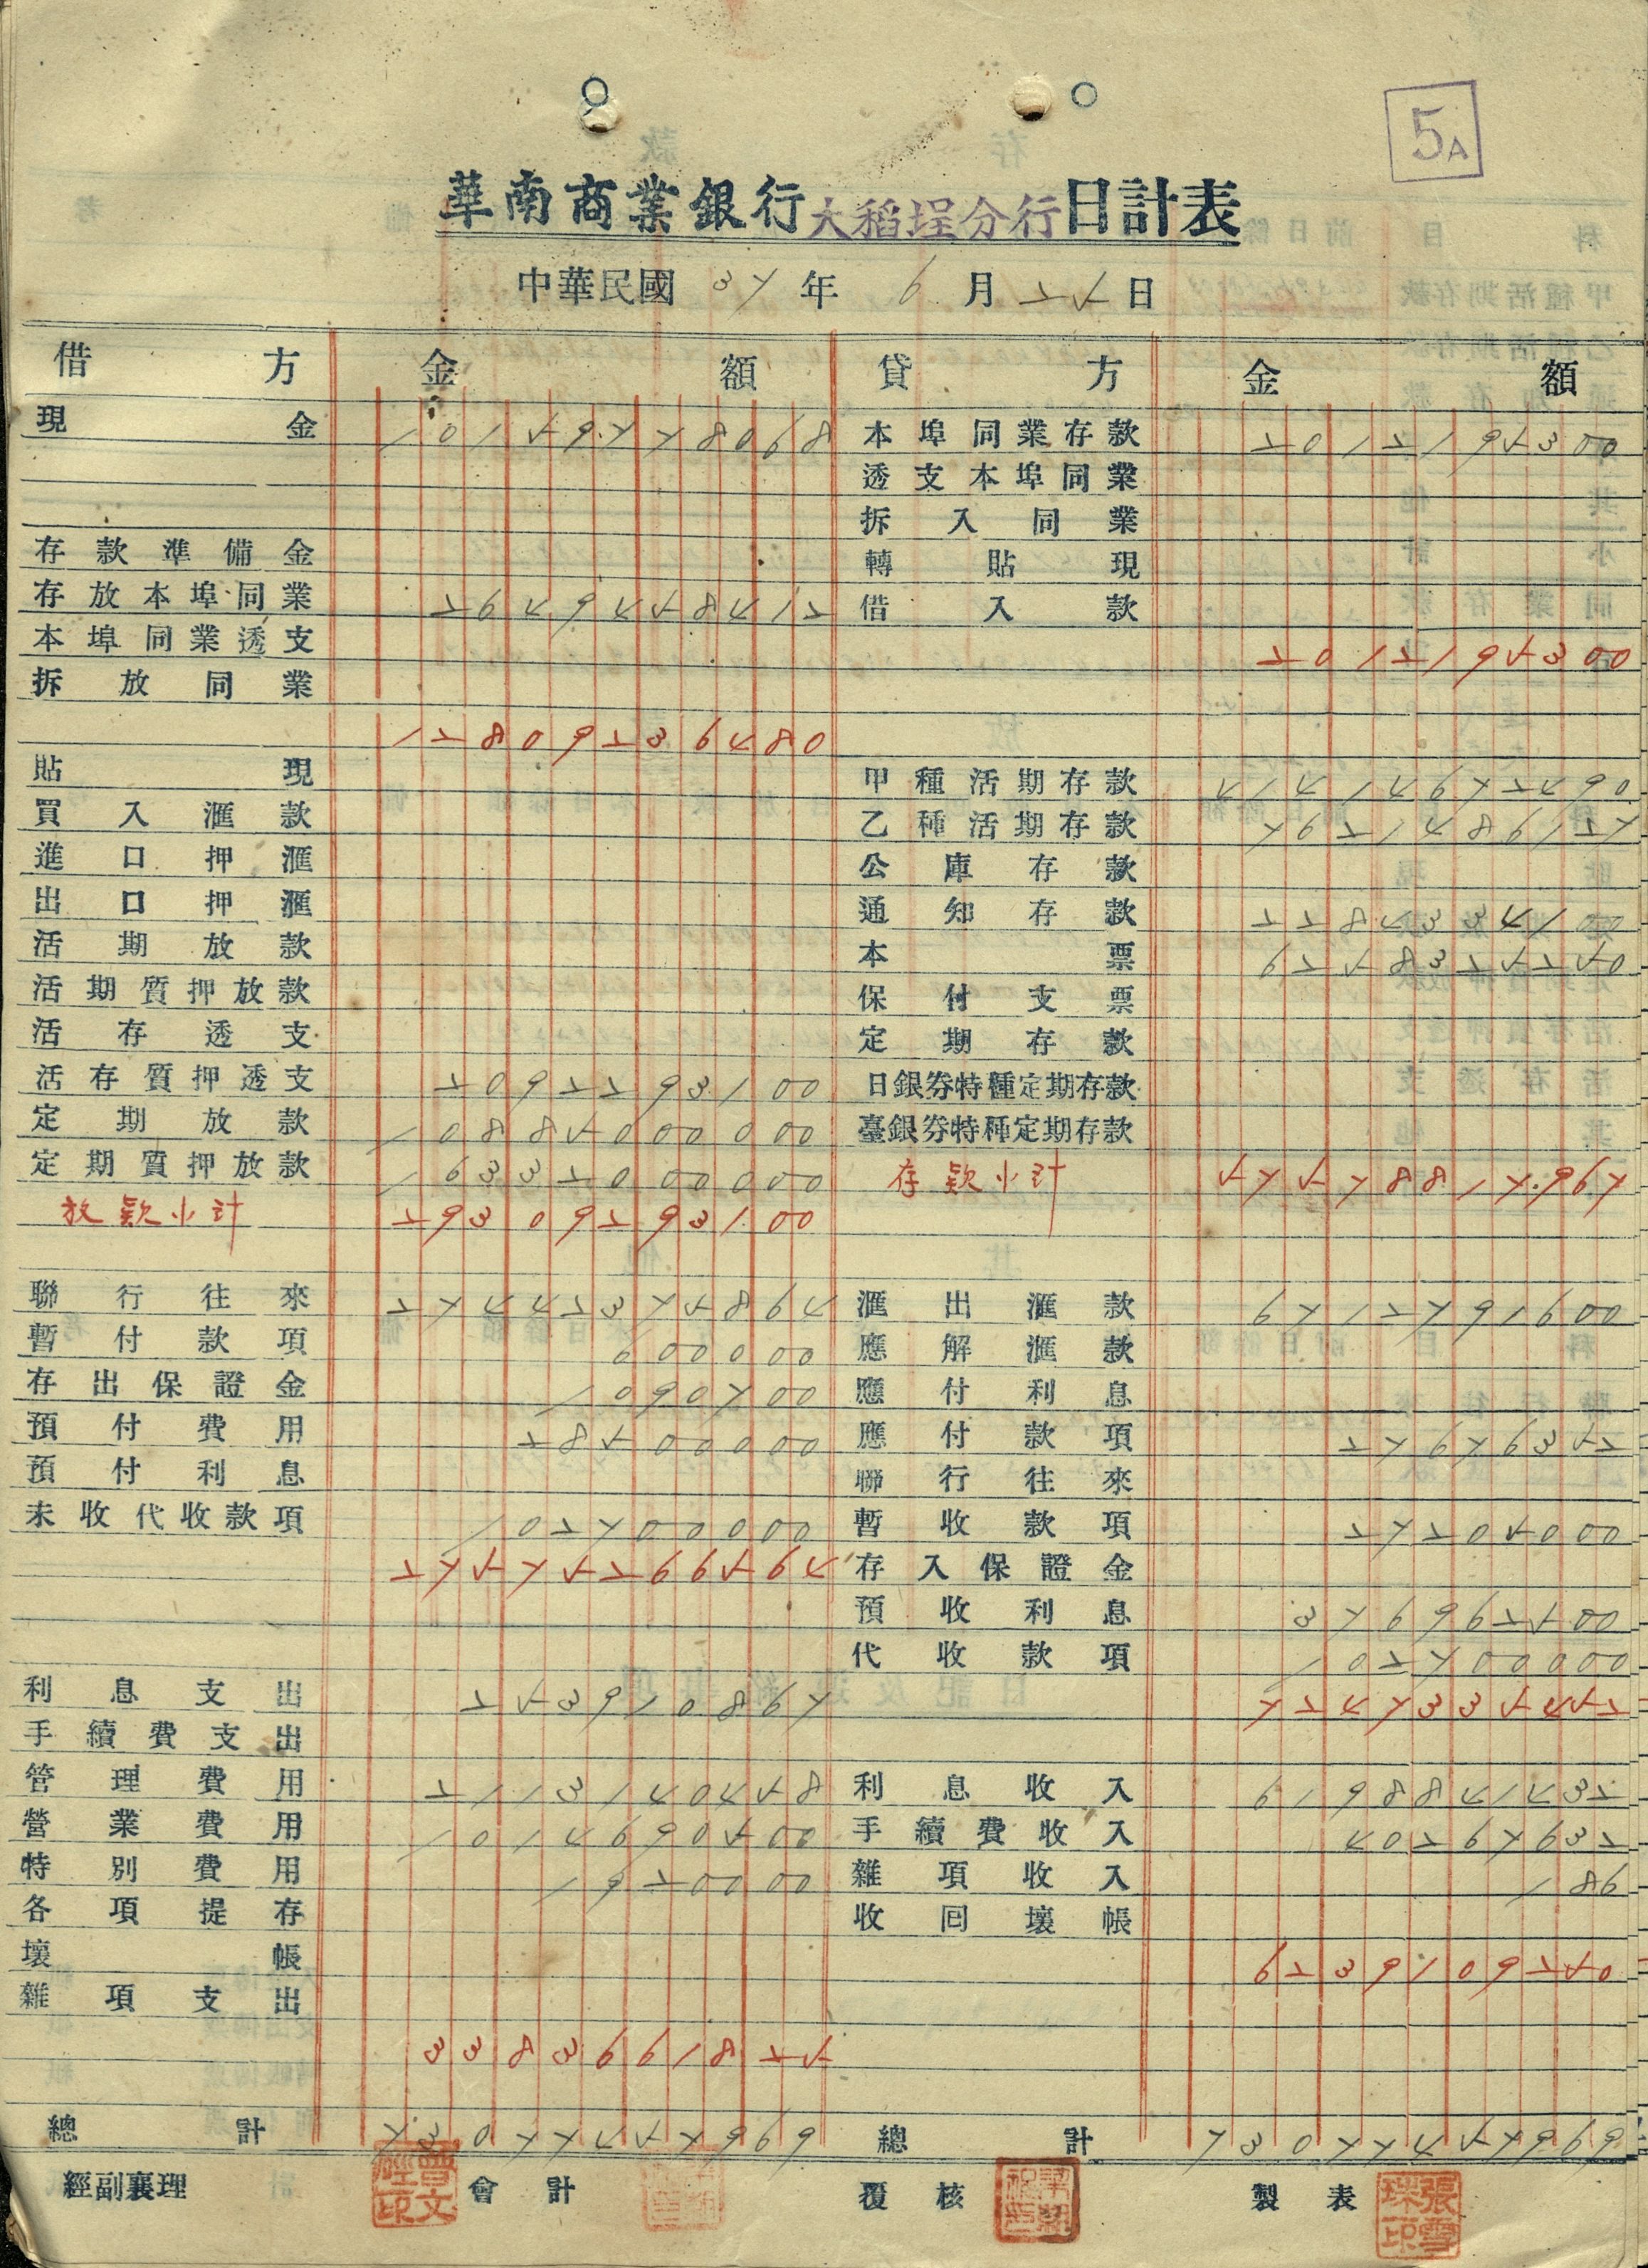 5A
華南商業銀行大稻埕分行日計表
中華民國 37 年 6 月 25 日
借方 金額 貸方 金額
現金 10159778068 本埠同業存款 2012195300
透支本埠同業
拆入同業
存款準備金 轉貼現
存放本埠同業 2649458412 借入款
本埠同業透支 2012195300
拆放同業
12809236480
貼現 甲種活期存款 41414672490
買入滙款 乙種活期存款 7621486127
進口押滙 公庫存款
出口押滙 通知存款 2284334100
活期放款 本票 6258325250
活期質押放款 保付支票
活存透支 定期存款
活存質押透支 2092293100 日銀券特種定期存款
定期放款 10885000000 臺銀券特種定期存款
定期質押放款 16332000000 存款小計 57578817967
放款小計 29309293100
聯行往來 27442375864 滙出滙款 6712791600
暫付款項 600000 應解滙款
存出保證金 1090700 應付利息
預付費用 28500000 應付款項 27676352
預付利息 聯行往來
未收代收款項 102700000 暫收款項 27205000
27575266564 存入保證金
預收利息 376962500
代收款項 102700000
利息支出 253910867 7247335452
手續費支出
管理費用 2113140458 利息收入 6198841432
營業費用 1014690500 手續費收入 40267632
特別費用 1920000 雜項收入 186
各項提存 收回壞帳
壞帳 6239109250
雜項支出
3383661825
總計 73077457969 總計 73077457969
經副襄理 曾文經印 會計 覆核 製表 張雪珠印